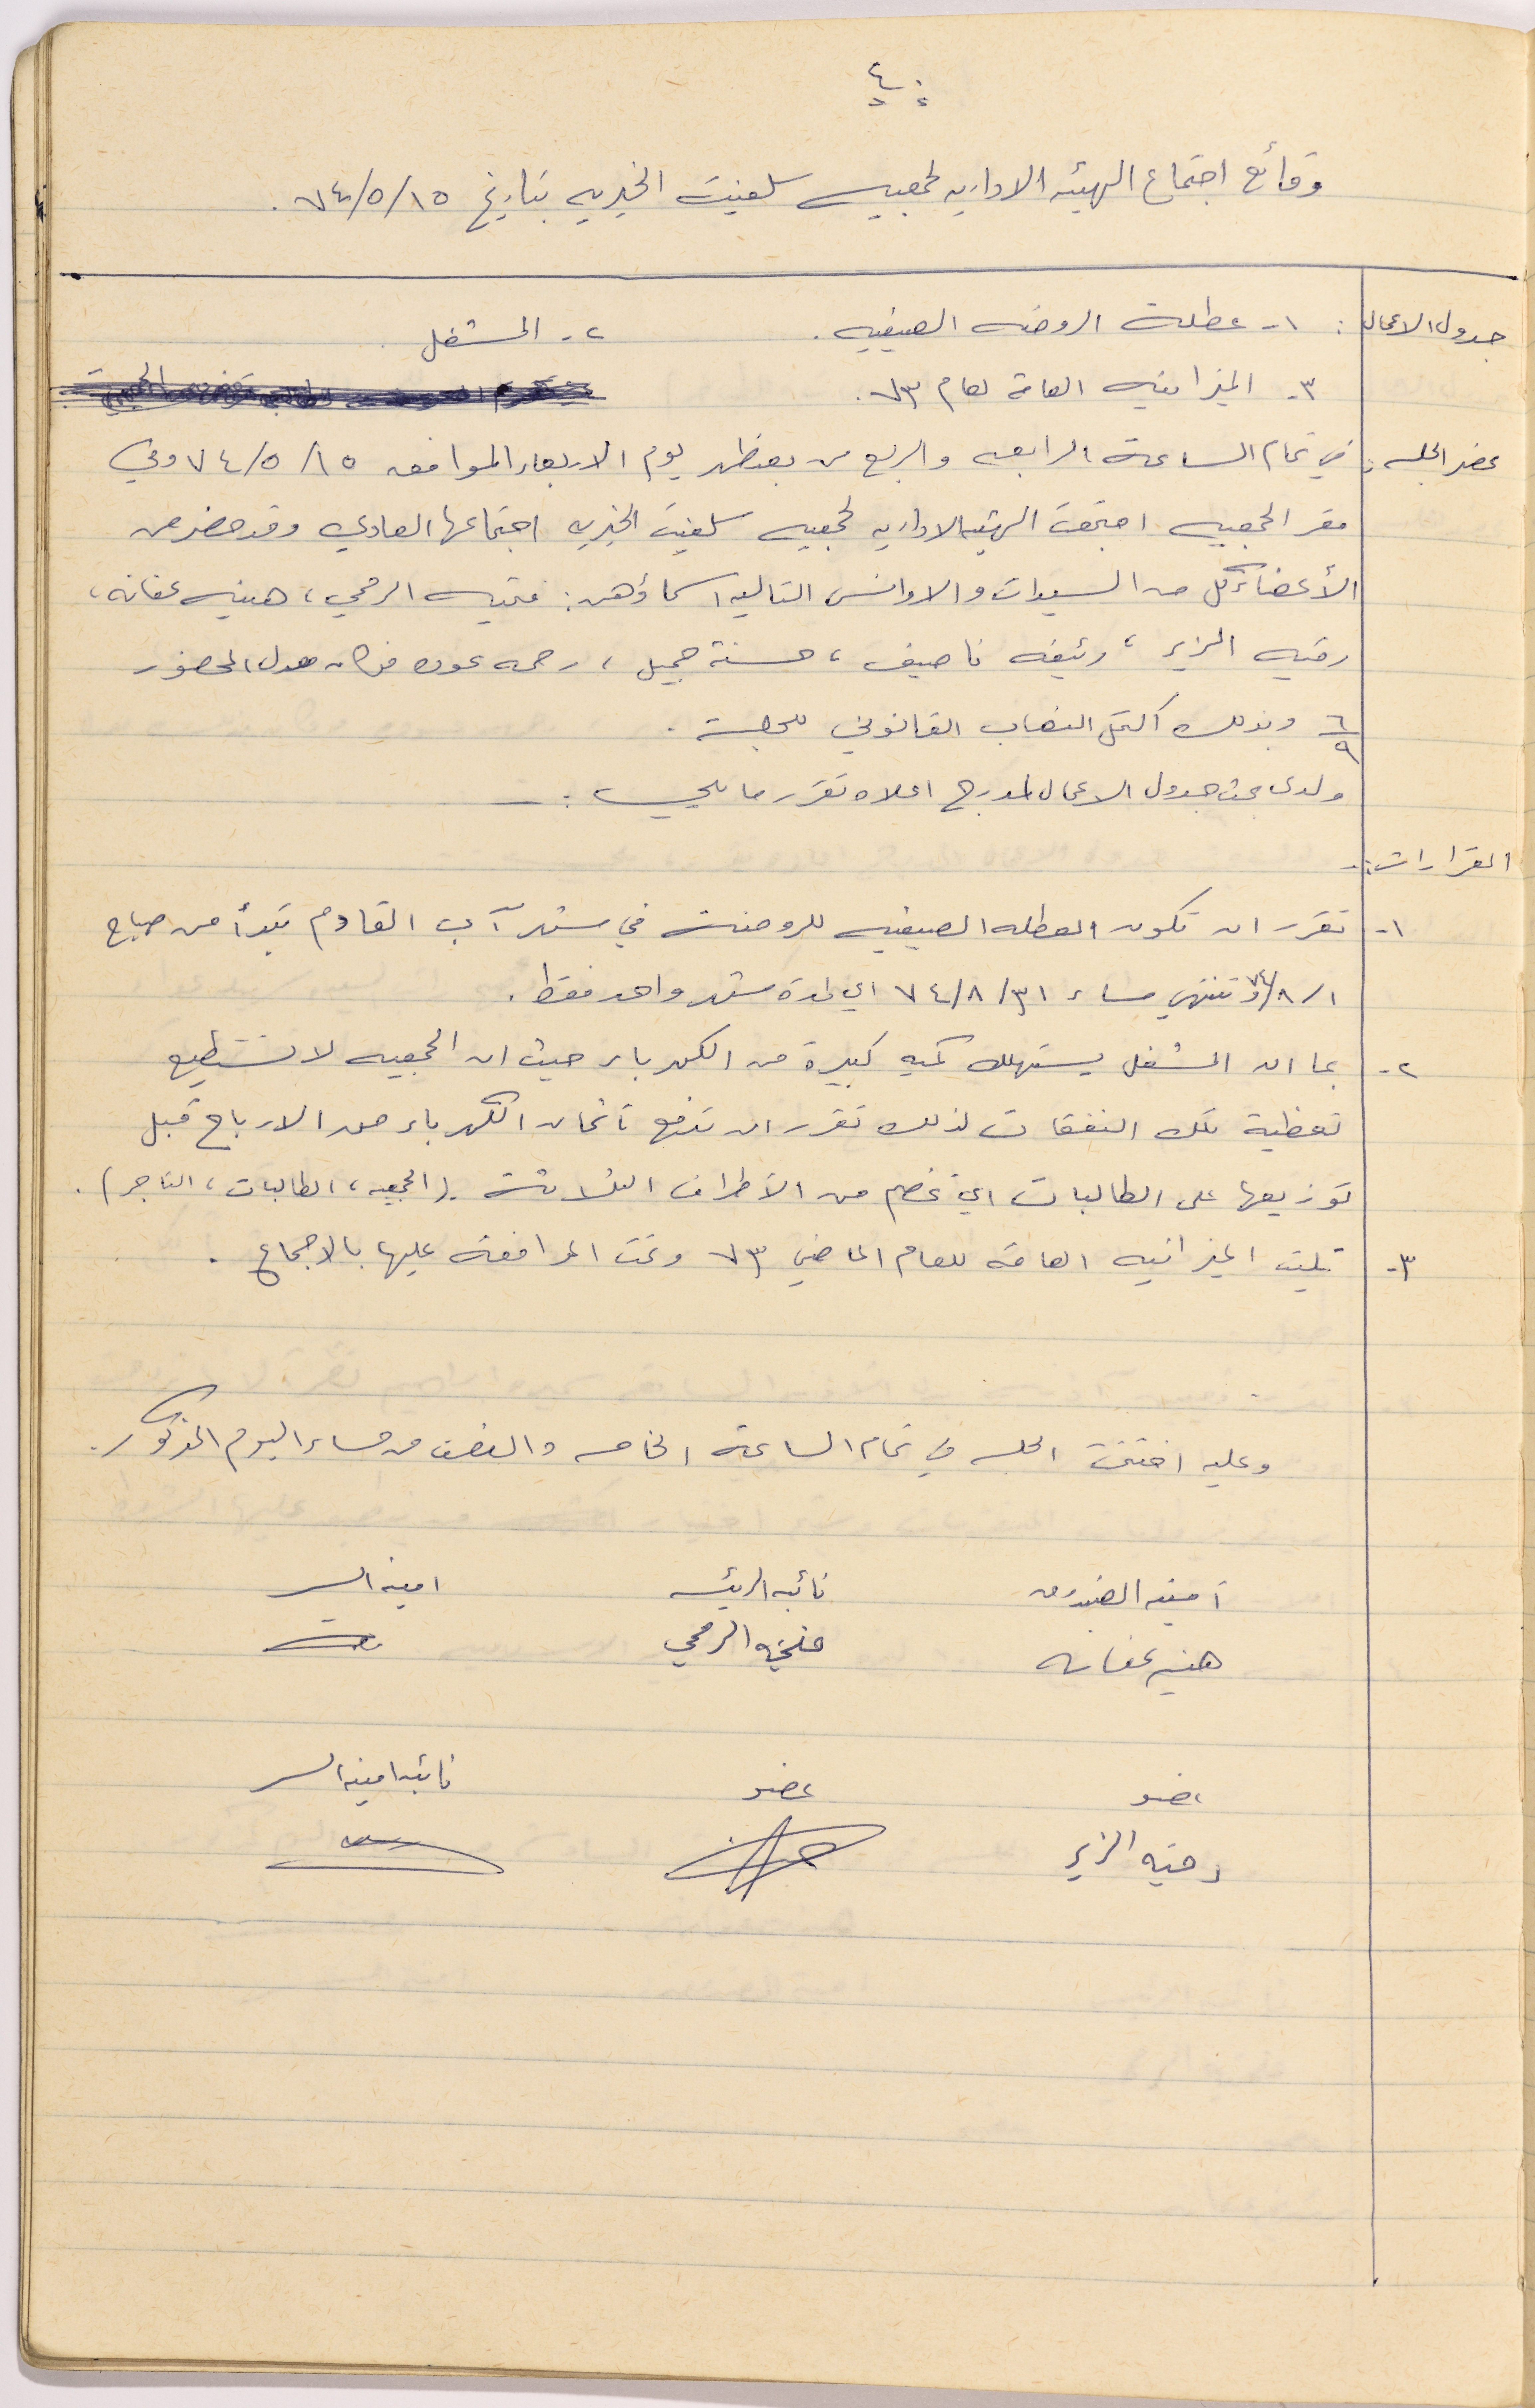 ٤٠
وقائع اجتماع الهيئه الاداريه لجمعيه سلفيت الخيريه بتاريخ ٧٤/٥/١٥ .
جدول الاعمال : ١- عطلة الروضه الصيفيه . ٢- المشغل .
٣- الميزانيه العامة لعام ٧٣ .
محضر الجلسه : في تمام الساعة الرابعه والربع من بعد ظهر يوم الاربعاء الموافق ٧٤/٥/١٥ وفي
مقر الجمعيه اجتمعت الهيئه الاداريه لجمعيه سلفيت الخيريه اجتماعها العادي وقد حضر من
الأعضاء كل من السيدات والاوانس التاليه اسماؤهن : فتحيه الرمحي ، هنيه عفانه ،
رقيه الزير ، رئيفه ناصيف ، حسنة جميل ، رحمه عوده فكان معدل الحضور
٦/٩ وبذلك اكتمل النصاب القانوني للجلسة .
ولدى بحث جدول الاعمال المدرج اعلاه تقرر ما يلي :-
القرارات :-
١- تقرر ان تكون العطله الصيفيه للروضة في شهر آب القادم تبدأ من صباح
٧٤/٨/١ وتنتهي مساء ٧٤/٨/٣١ اي لمدة شهر واحد فقط .
٢- بما ان المشغل يستهلك كميه كبيرة من الكهرباء حيث ان الجمعيه لا تستطيع
تغطية تلك النفقات لذلك تقرر ان تدفع اثمان الكهرباء من الارباح قبل
توزيعها على الطالبات اي تخصم من الأطراف الثلاثة . (الجمعيه ، الطالبات ، التاجر) .
٣- تليت الميزانيه العامة للعام الماضي ٧٣ وتمت الموافقة عليها بالاجماع .
وعليه اختتمت الجلسه في تمام الساعة الخامسه والنصف من مساء اليوم المذكور .
أمينه الصندوق نائبه الرئيسه امينه السر
هنيه عفانه فتحيه الرمحي
عضو عضو نائبه امينه السر
رقيه الزير